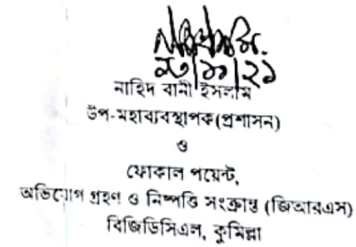 ২৩/১১/২১
নাহিদ বানী ইসলাম
উপ-মহাব্যবস্থাপক(প্রশাসন)
ও
ফোকাল পয়েন্ট,
অভিযোগ গ্রহণ ও নিষ্পত্তি সংক্রান্ত (জিআরএস)
বিজিডিসিএল, কুমিল্লা